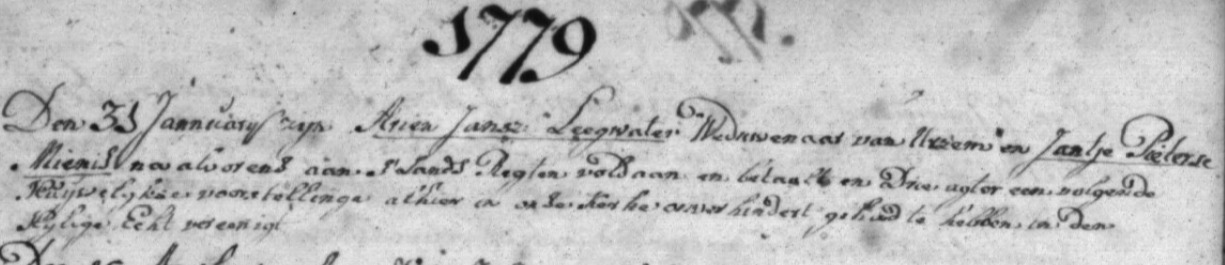 1779
Den 31 Jannuarij zijn Arien Jansz: Leegwater Weduwenaar van Urzem en Jantje Pieterse
Mienis na alvorens aan s'Lands Regten voldaan en betaalt en Drie agter een volgende
Huijwelykse voorstellinge alhier in onse kerke onverhindert gehad te hebben in den
Hylige Echt vereenigt